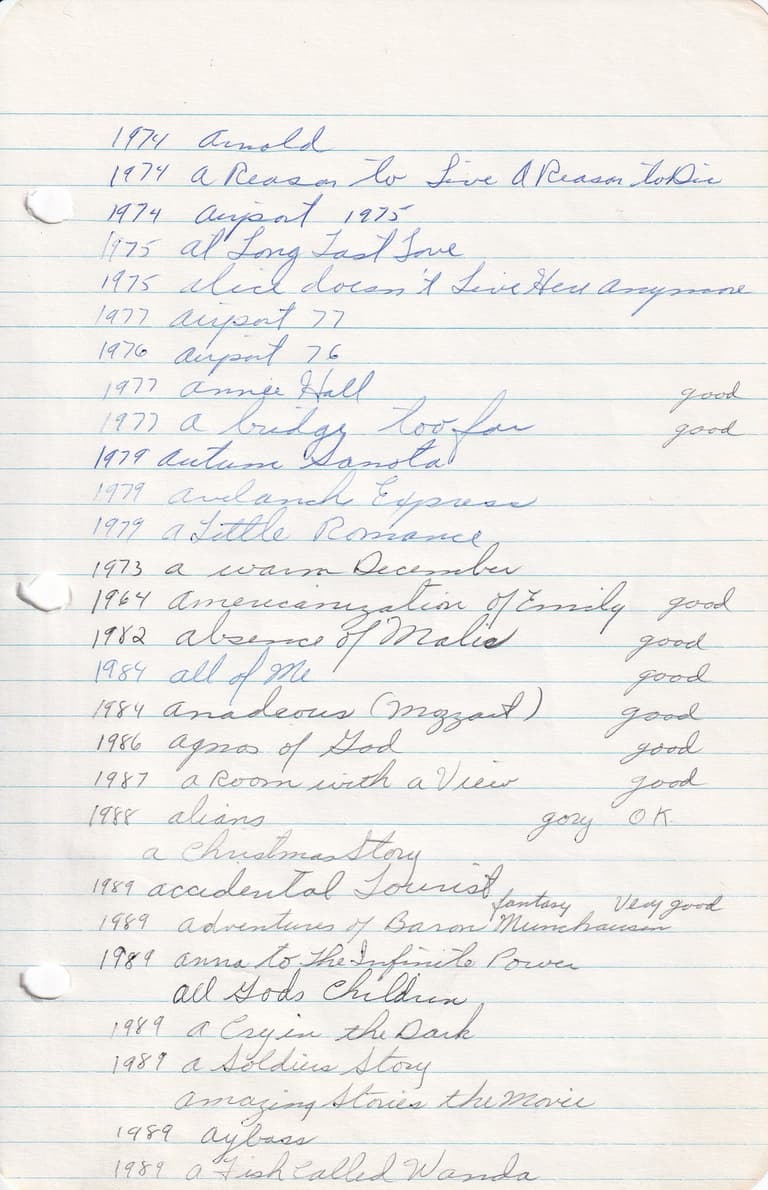 1974 Arnold
1974 A Reason to Live A Reason to Die
1974 Airport 1975
1975 At Long Last Love
1975 Alice doesn't Live Here Anymore
1977 Airport 77
1976 Airport 76
1977 Annie Hall good
1977 A bridge too far good
1979 Autumn Sonota
1979 Avalanch Express
1979 A Little Romance
1973 A warm December
1964 Americanization of Emily good
1982 Absence of Malice good
1984 All of Me good
1984 Amadeous (Mozzart) good
1986 Agnas of God good
1987 A Room with a View good
1988 Alians gory OK
A Christmas Story
1989 Accidental Tourist
fantasy Very good
1989 Adventures of Baron Munchausen
1989 Anna to The Infinite Power
All Gods Children
1989 A Cry in the Dark
1989 A Soldiers Story
Amazing Stories the Movie
1989 Aybass
1989 A Fish Called Wanda